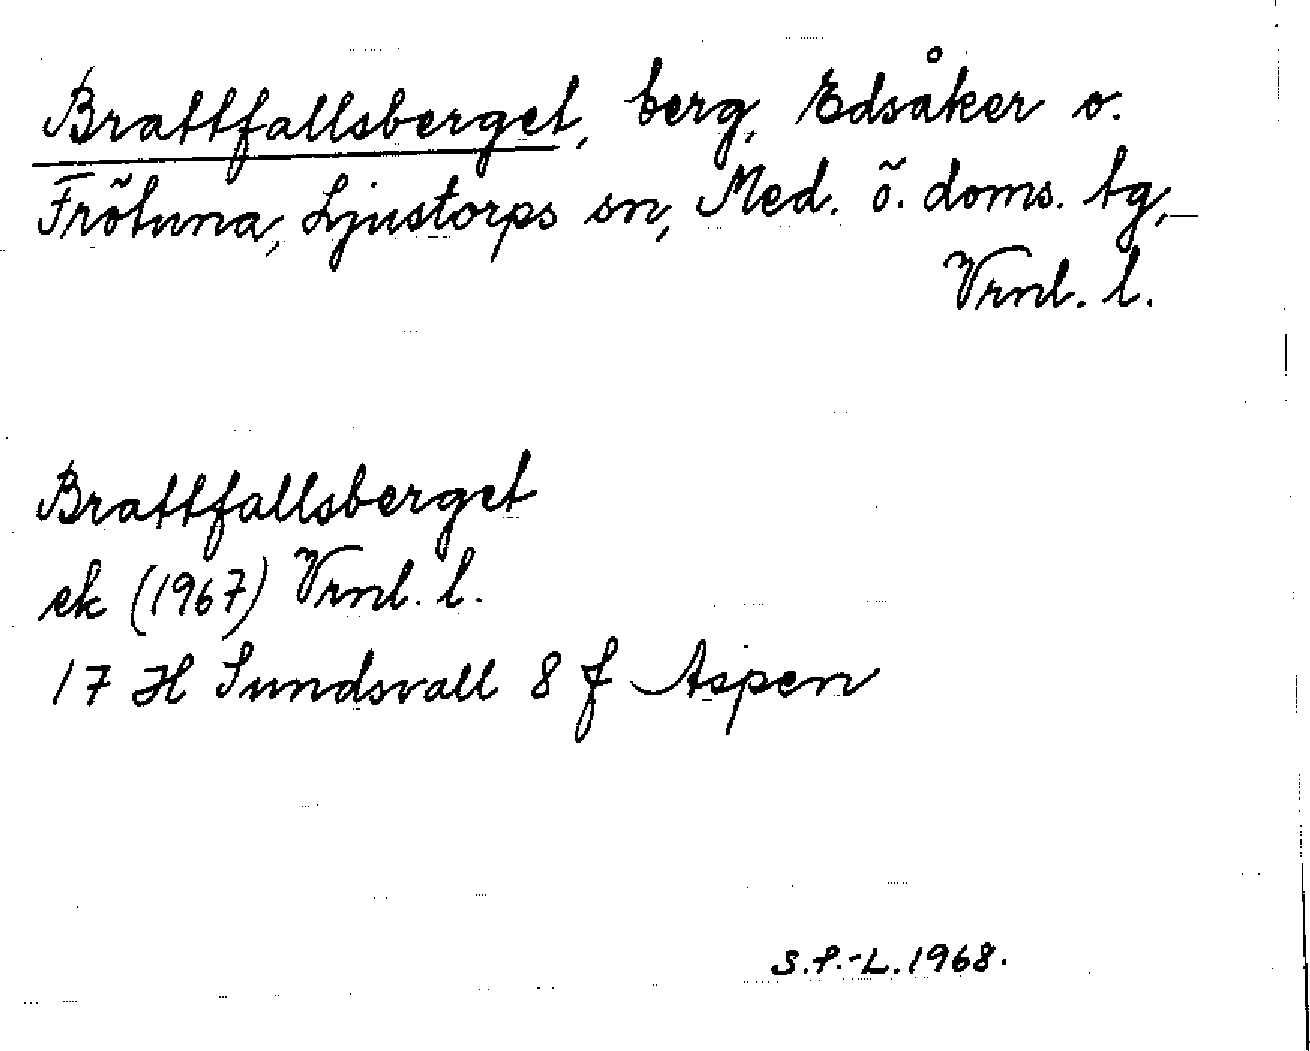 Brattfallsberget, berg, Edsåker o.
Frötuna, Ljustorps sn, Med. ö. doms. tg,
Vrnl. l.
Brattfallsberget
ek (1967) Vrnl. l.
17 H Sundsvall 8 f Aspen
S.P.-L. 1968.